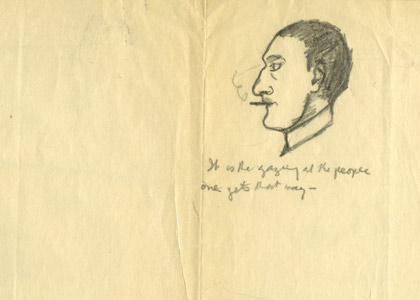 It is the gazing at the people
one gets that way —